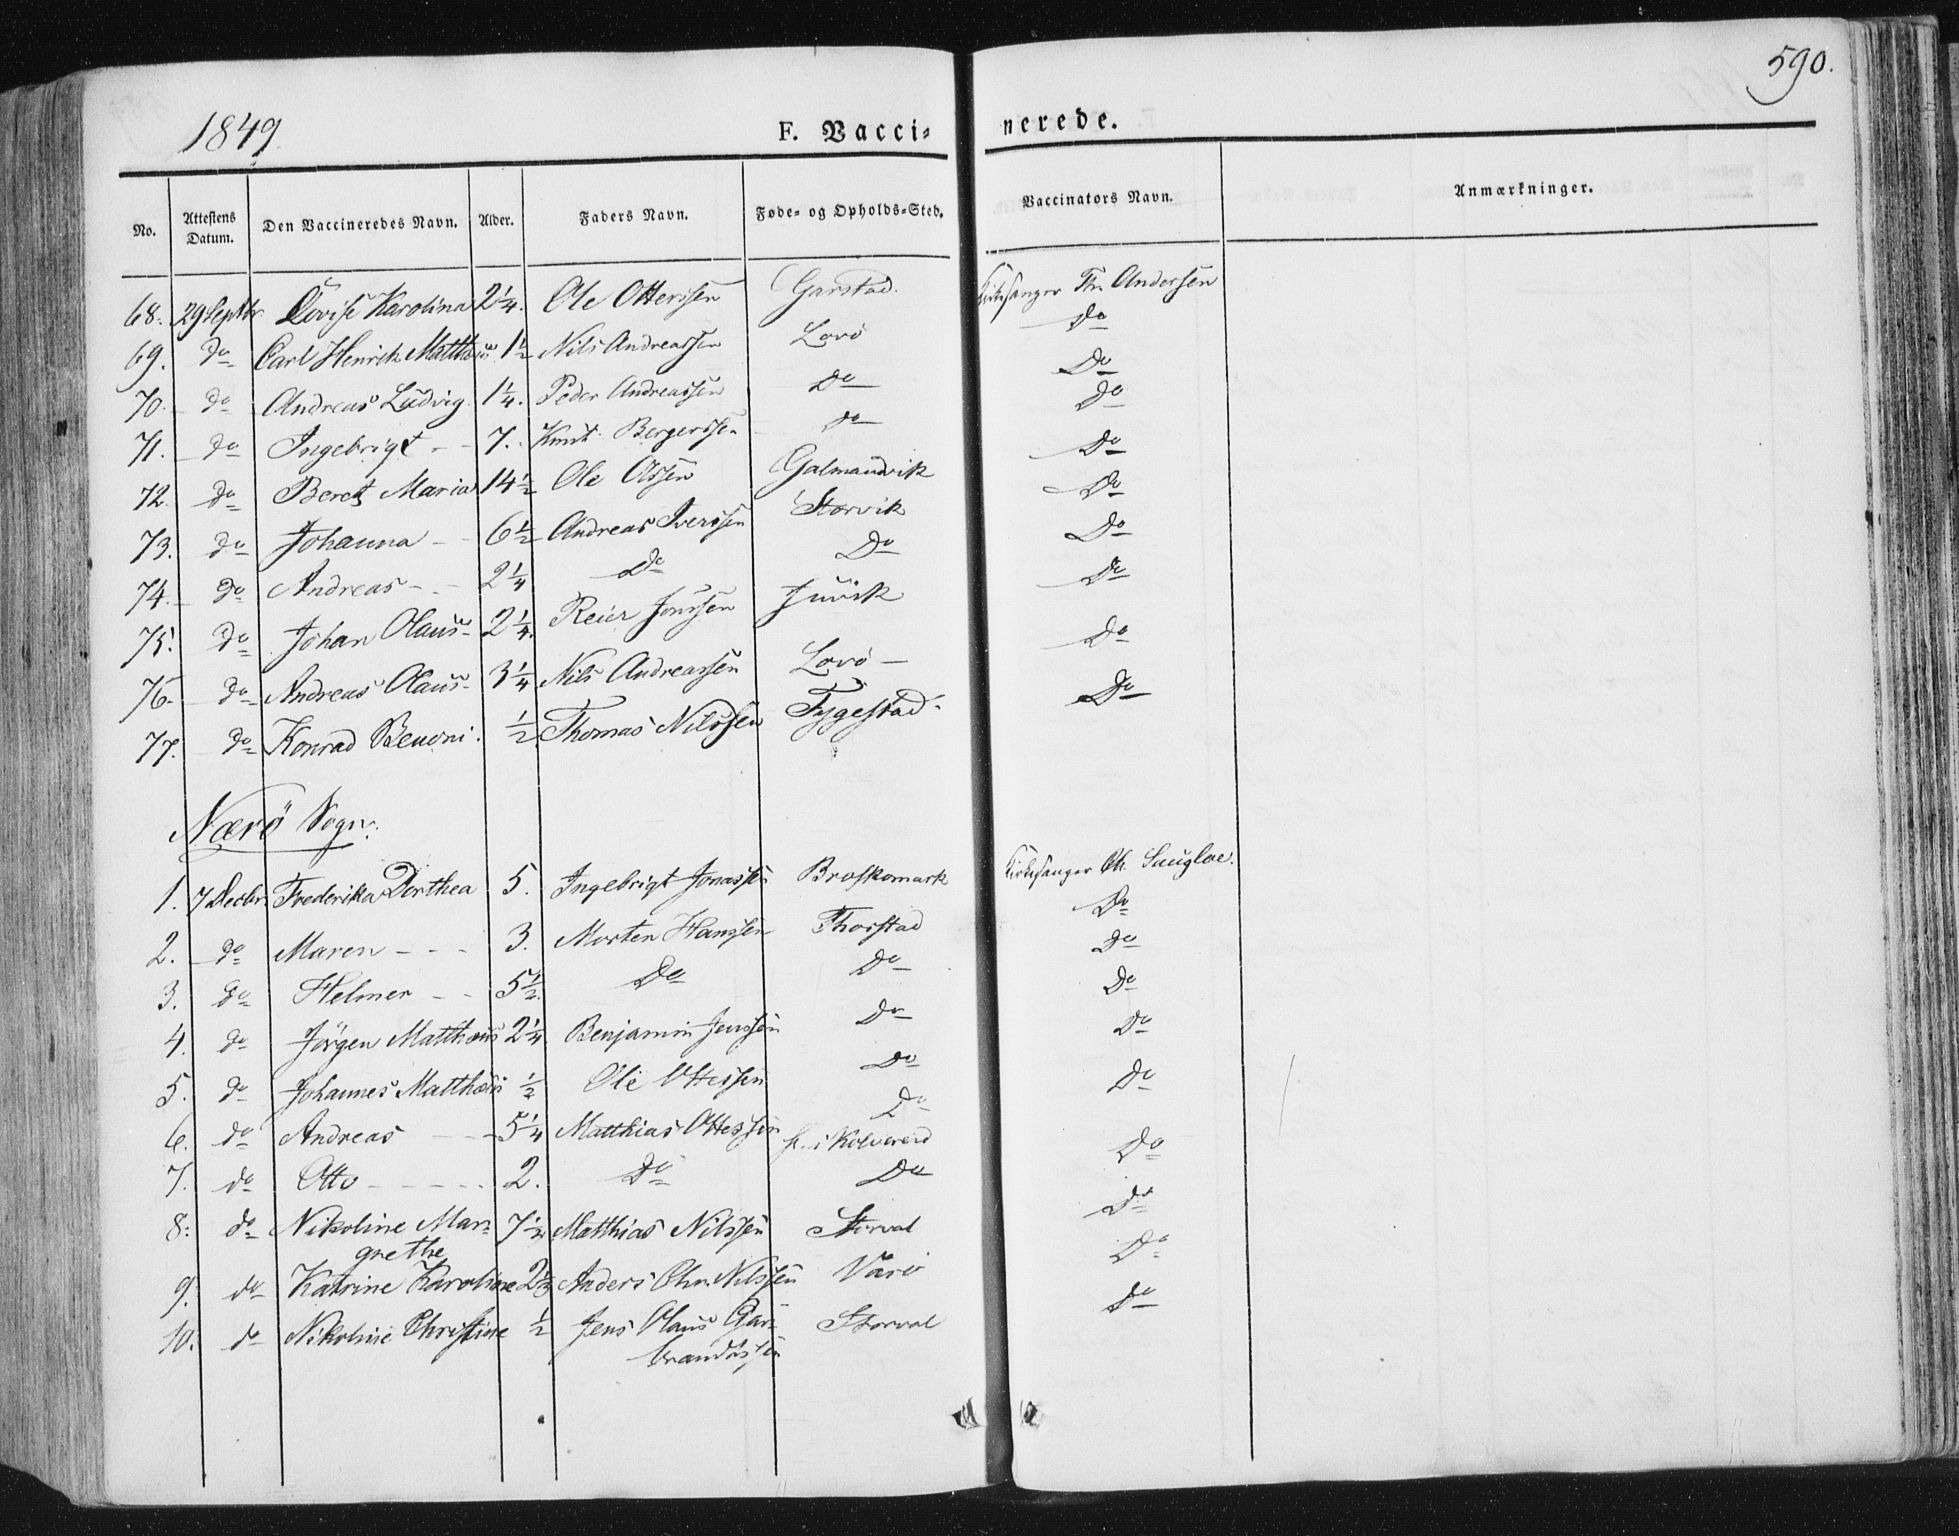 590.
1849
F. Vacci-
nerede.
No. Attestens Datum. Den Vaccineredes Navn. Alder. Faders Navn. Føde- og Opholds-Sted. Vaccinators Navn. Anmærkninger.
68. 29 Septbr Lovise Karolina 2¼. Ole Ottersen Garstad. Kirkesanger Andersen
69. do Carl Henrik Matthæus 1½ Nils Andreassen Lovö Do
70. do Andreas Ludvig 1¼. Peder Andreassen Do Do
71. do Ingebrigt 7. Knut Bergerssen do Do
72. do Beret Maria 14½ Ole Olssen Galmandvik Do
73. do Johanna 6½ Andreas Iverssen Storvik Do
74. do Andreas 2¼ Do Do Do
75. do Johan Olaus 2¼. Reier Jonssen Juvik Do
76. do Andreas Olaus 3¼ Nils Andreassen Lovö Do
77. do Konrad Benoni. ½ Thomas Nilssen Tygestad Do
Nærö Sogn.
1. 7 Decbr. Frederika Dorthea 5. Ingebrigt Jonassen Broskomark Kirkesanger
2. do Maren 3. Morten Hanssen Thorstad Do
3. do Helmer 5½. Do Do Do
4. do Jörgen Matthæus 2¼ Benjamin Jenssen Do Do
5. do Johannes Matthæus ½ Ole Ottessen Do Do
6. do Andreas 5¼ Matthias Ottessen Do Do
f. i Kolvereid
7. do Otto 2. Do Do Do
8. do Nikoline Mar- 7½ Matthias Nilssen Storval Do
grethe
9. do Katrine Karoline Anders Chr. Nilssen Värö Do
10. do Nikoline Christine ½ Jens Olaus Gar- Storval Do
brandtssen